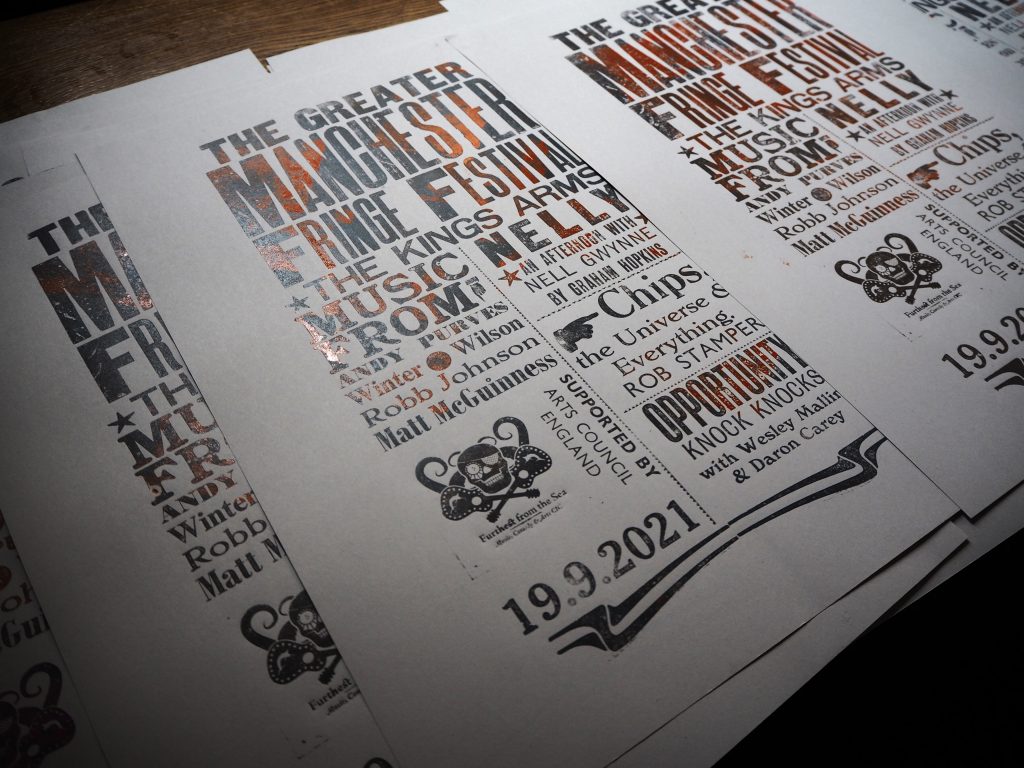 THE GREATER
MANCHESTER
FRINGE FESTIVAL
THE KINGS ARMS
MUSIC
FROM
ANDY PURVES
Winter Wilson
Robb Johnson
Matt McGuinness
NELLY
AN AFTERNOON WITH
NELL GWYNNE
BY GRAHAM HOPKINS
Chips,
the Universe &
Everything.
ROB STAMPER
OPPORTUNITY
KNOCK KNOCKS
with Wesley Mallin
& Daron Carey
SUPPORTED BY
ARTS COUNCIL
ENGLAND
Furthest from the Sea
Music, Comedy & Arts CIC
19.9.2021
THE GREATER
MANCHESTER
FRINGE FESTIVAL
THE KINGS ARMS
MUSIC
FROM
ANDY PURVES
Winter Wilson
Robb Johnson
Matt McGuinness
NELLY
AN AFTERNOON WITH
NELL GWYNNE
BY GRAHAM HOPKINS
Chips,
the Universe
Everything
ROB STAM
OPPO
SUPPORTED BY
ARTS COUNCIL
ENGLAND
Furthest from the Sea
19.9.2
THE
MA
FRI
TH
MU
FR
ANDY
Winter
Robb
Matt M
Furthest